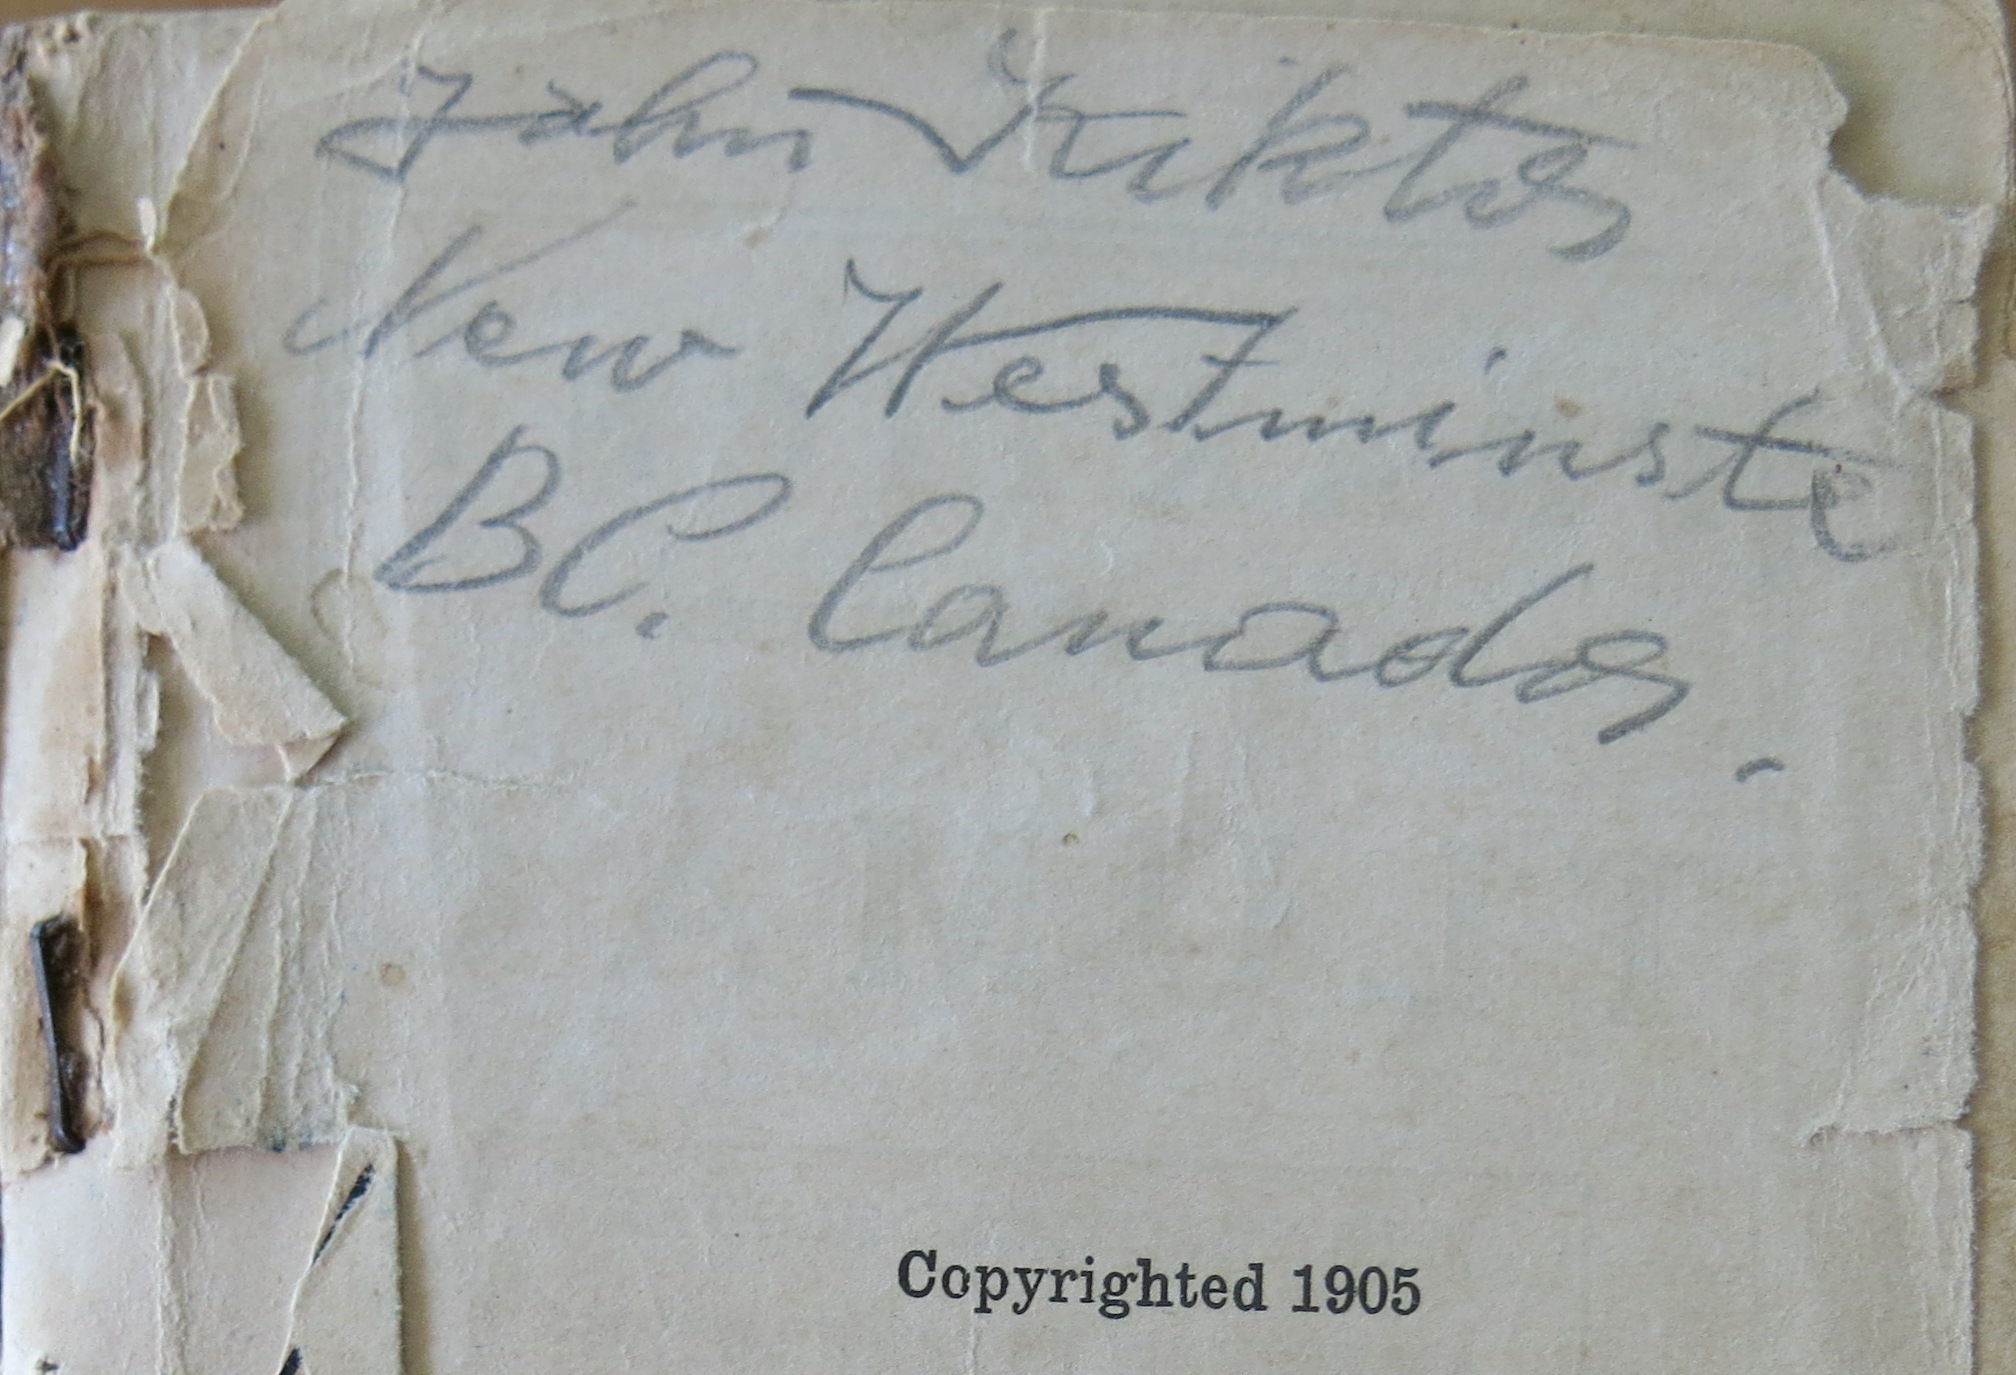 John
New Westminste
BC. Canada.
Copyrighted 1905